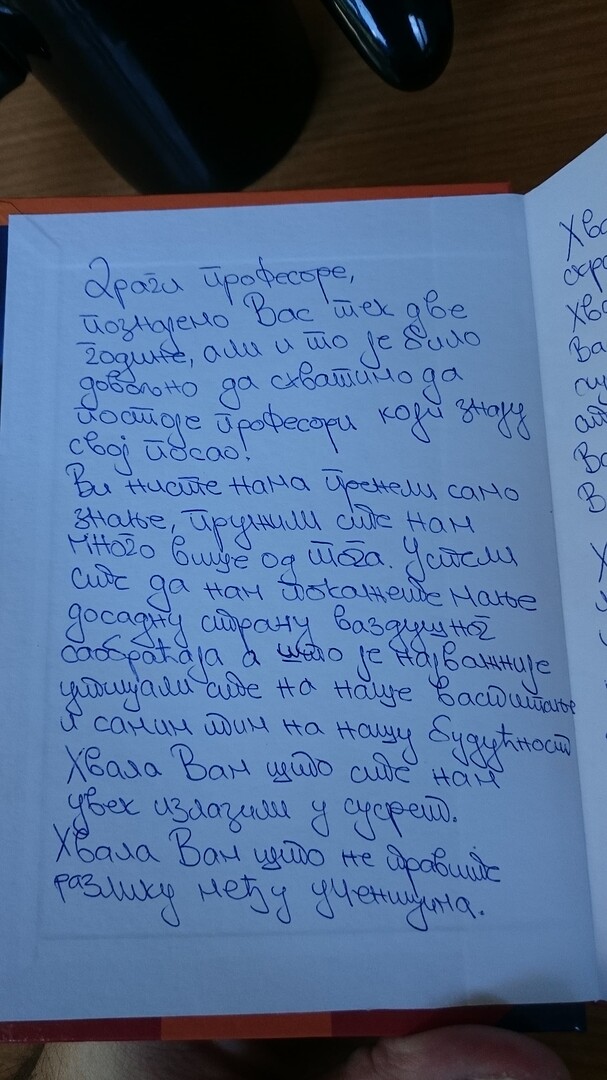 Драги професоре,
познајемо Вас тек две
године, али и то је било
довољно да схватимо да
постоје професори који знају
свој посао!
Ви нисте нама пренели само
знање, пружили сте нам
много више од тога. Успели
сте да нам покажете мање
досадну страну ваздушног
саобраћаја а што је најважније
утицали сте на наше васпитање
и самим тим на нашу будућност
Хвала Вам што сте нам
увек излазили у сусрет.
Хвала Вам што не правите
разлику међу ученицима.
Хва
Хва
Ва